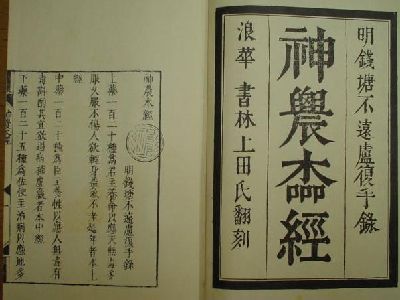 明錢塘不遠盧復手錄
神農本經
浪華 書林上田氏翻刻
神農本經
明錢塘不遠盧復手錄
上藥一百二十種為君主養命以應天無毒多
服久服不傷人欲輕身益氣不老延年者本上
經
中藥一百二十種為臣主養性以應人無毒有
毒斟酌其宜欲遏病補虛羸者本中經
下藥一百二十五種為佐使主治病以應地多